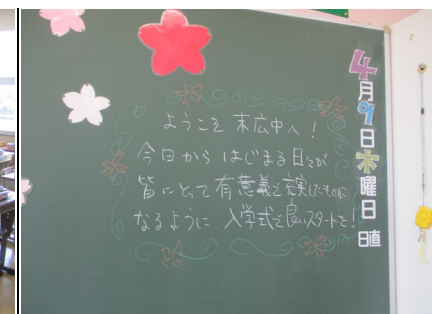 ようこそ 末広中へ!
今日から はじまる日々が
皆にとって有意義で充実したものに
なるように、入学式を良いスタートを!
4月9日木曜日
日直